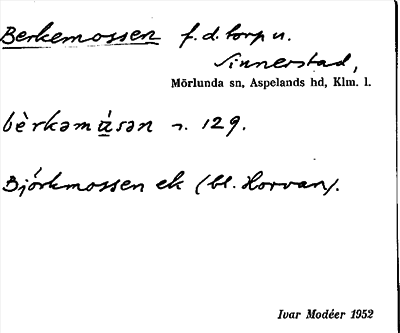 Berkemossen f.d. torp u.
Sinnerstad,
Mörlunda sn, Aspelands hd, Klm. l.
bèrkəmɑ́sən n. 129.
Björkmossen ek (bl. Horvan).
Ivar Modéer 1952